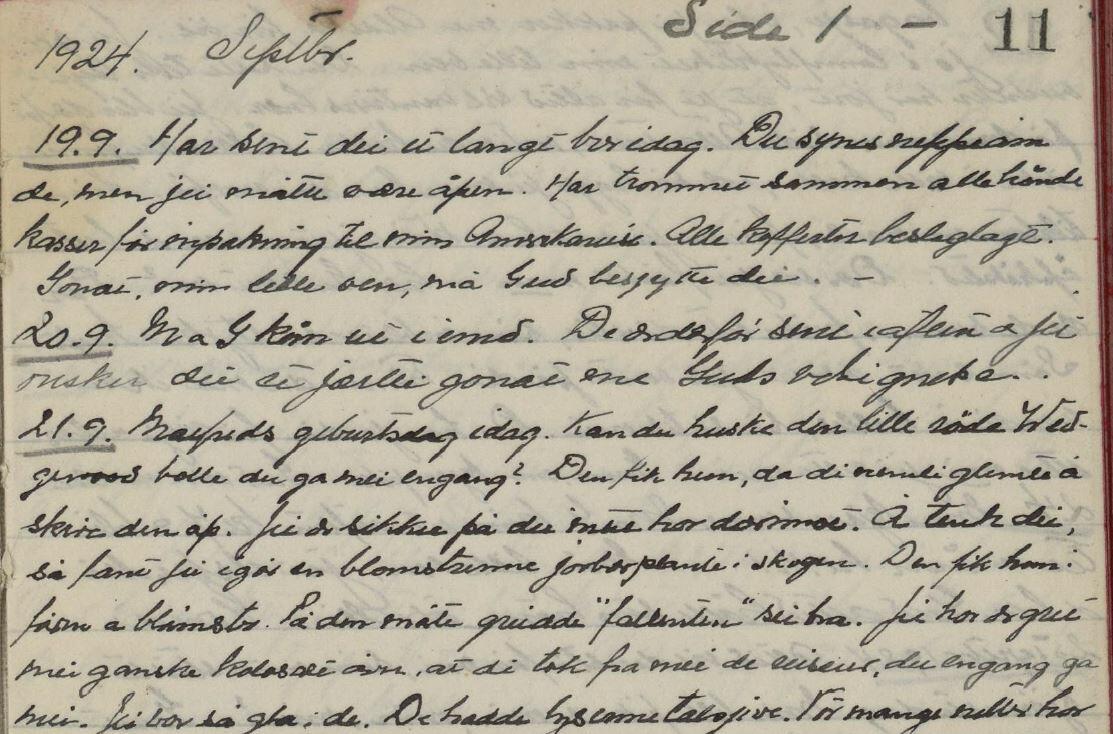 Side 1 — 11
1924. Septbr.
19.9. Har sent dei et langt brev idag. Du synes neppe åm
de, men jei måtte være åpen. Har trommet sammen alle hånde
kasser før inpakning til min Amerikareise. Alle kofferter beslaglagt.
Gonat, min lille ven, må Gud beskytte dei. —
20.9. M a G kåm ut i emd. De er derfor sent i aften a jei
ønsker dei et jærtli gonat me Guds velignelse.
21.9. Magfreds geburtsdag idag. Kan du huske den lille røde Wed-
gewood bolle du ga mei engang? Den fik hun, da di nemli glemte å
skrive den åp. Jei er sikker på du inte har dærimot. Å tenk dei,
så fant jei igår en blomstrenne jorbærplante i skogen. Den fik hun i
fårm a blåmster. På den måte greidde "fallenten" sei bra. Jei har ærgret
mei ganske kolosalt åvr, at di tok fra mei de reiseur, du engang ga
mei. Jei var så gla i de. De hadde lysenne talskive. Før mange netter har